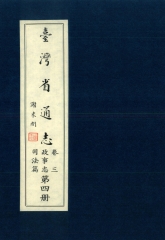 臺灣省通志
謝東閔
卷三
政事志
司法篇
第四冊